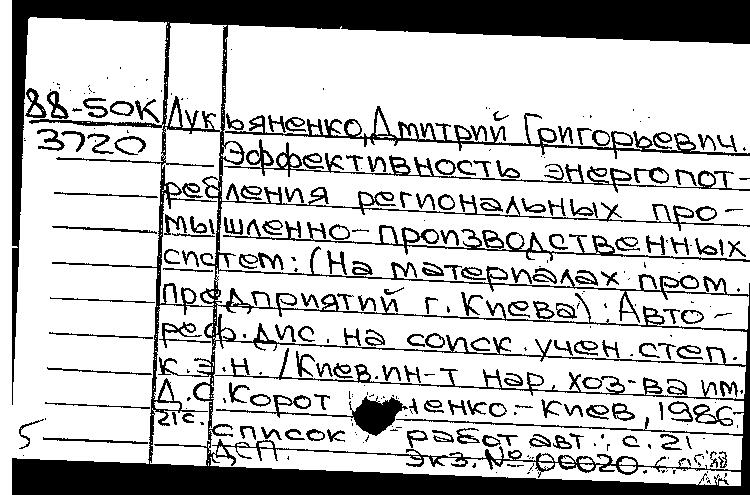 88-50К Лукьяненко, Дмитрий Григорьевич.
3720 Эффективность энергопот-
ребления региональных про-
мышленно-производственных
систем: (На материалах пром.
предприятий г. Киева): Авто-
реф. дис. на соиск. учен. степ.
к.э.н. / Киев. ин-т нар. хоз-ва им.
Д.С. Корот ченко.- Киев, 1986.
21с. список работ авт.: с. 21
5 ДСП. Экз. № 00020.